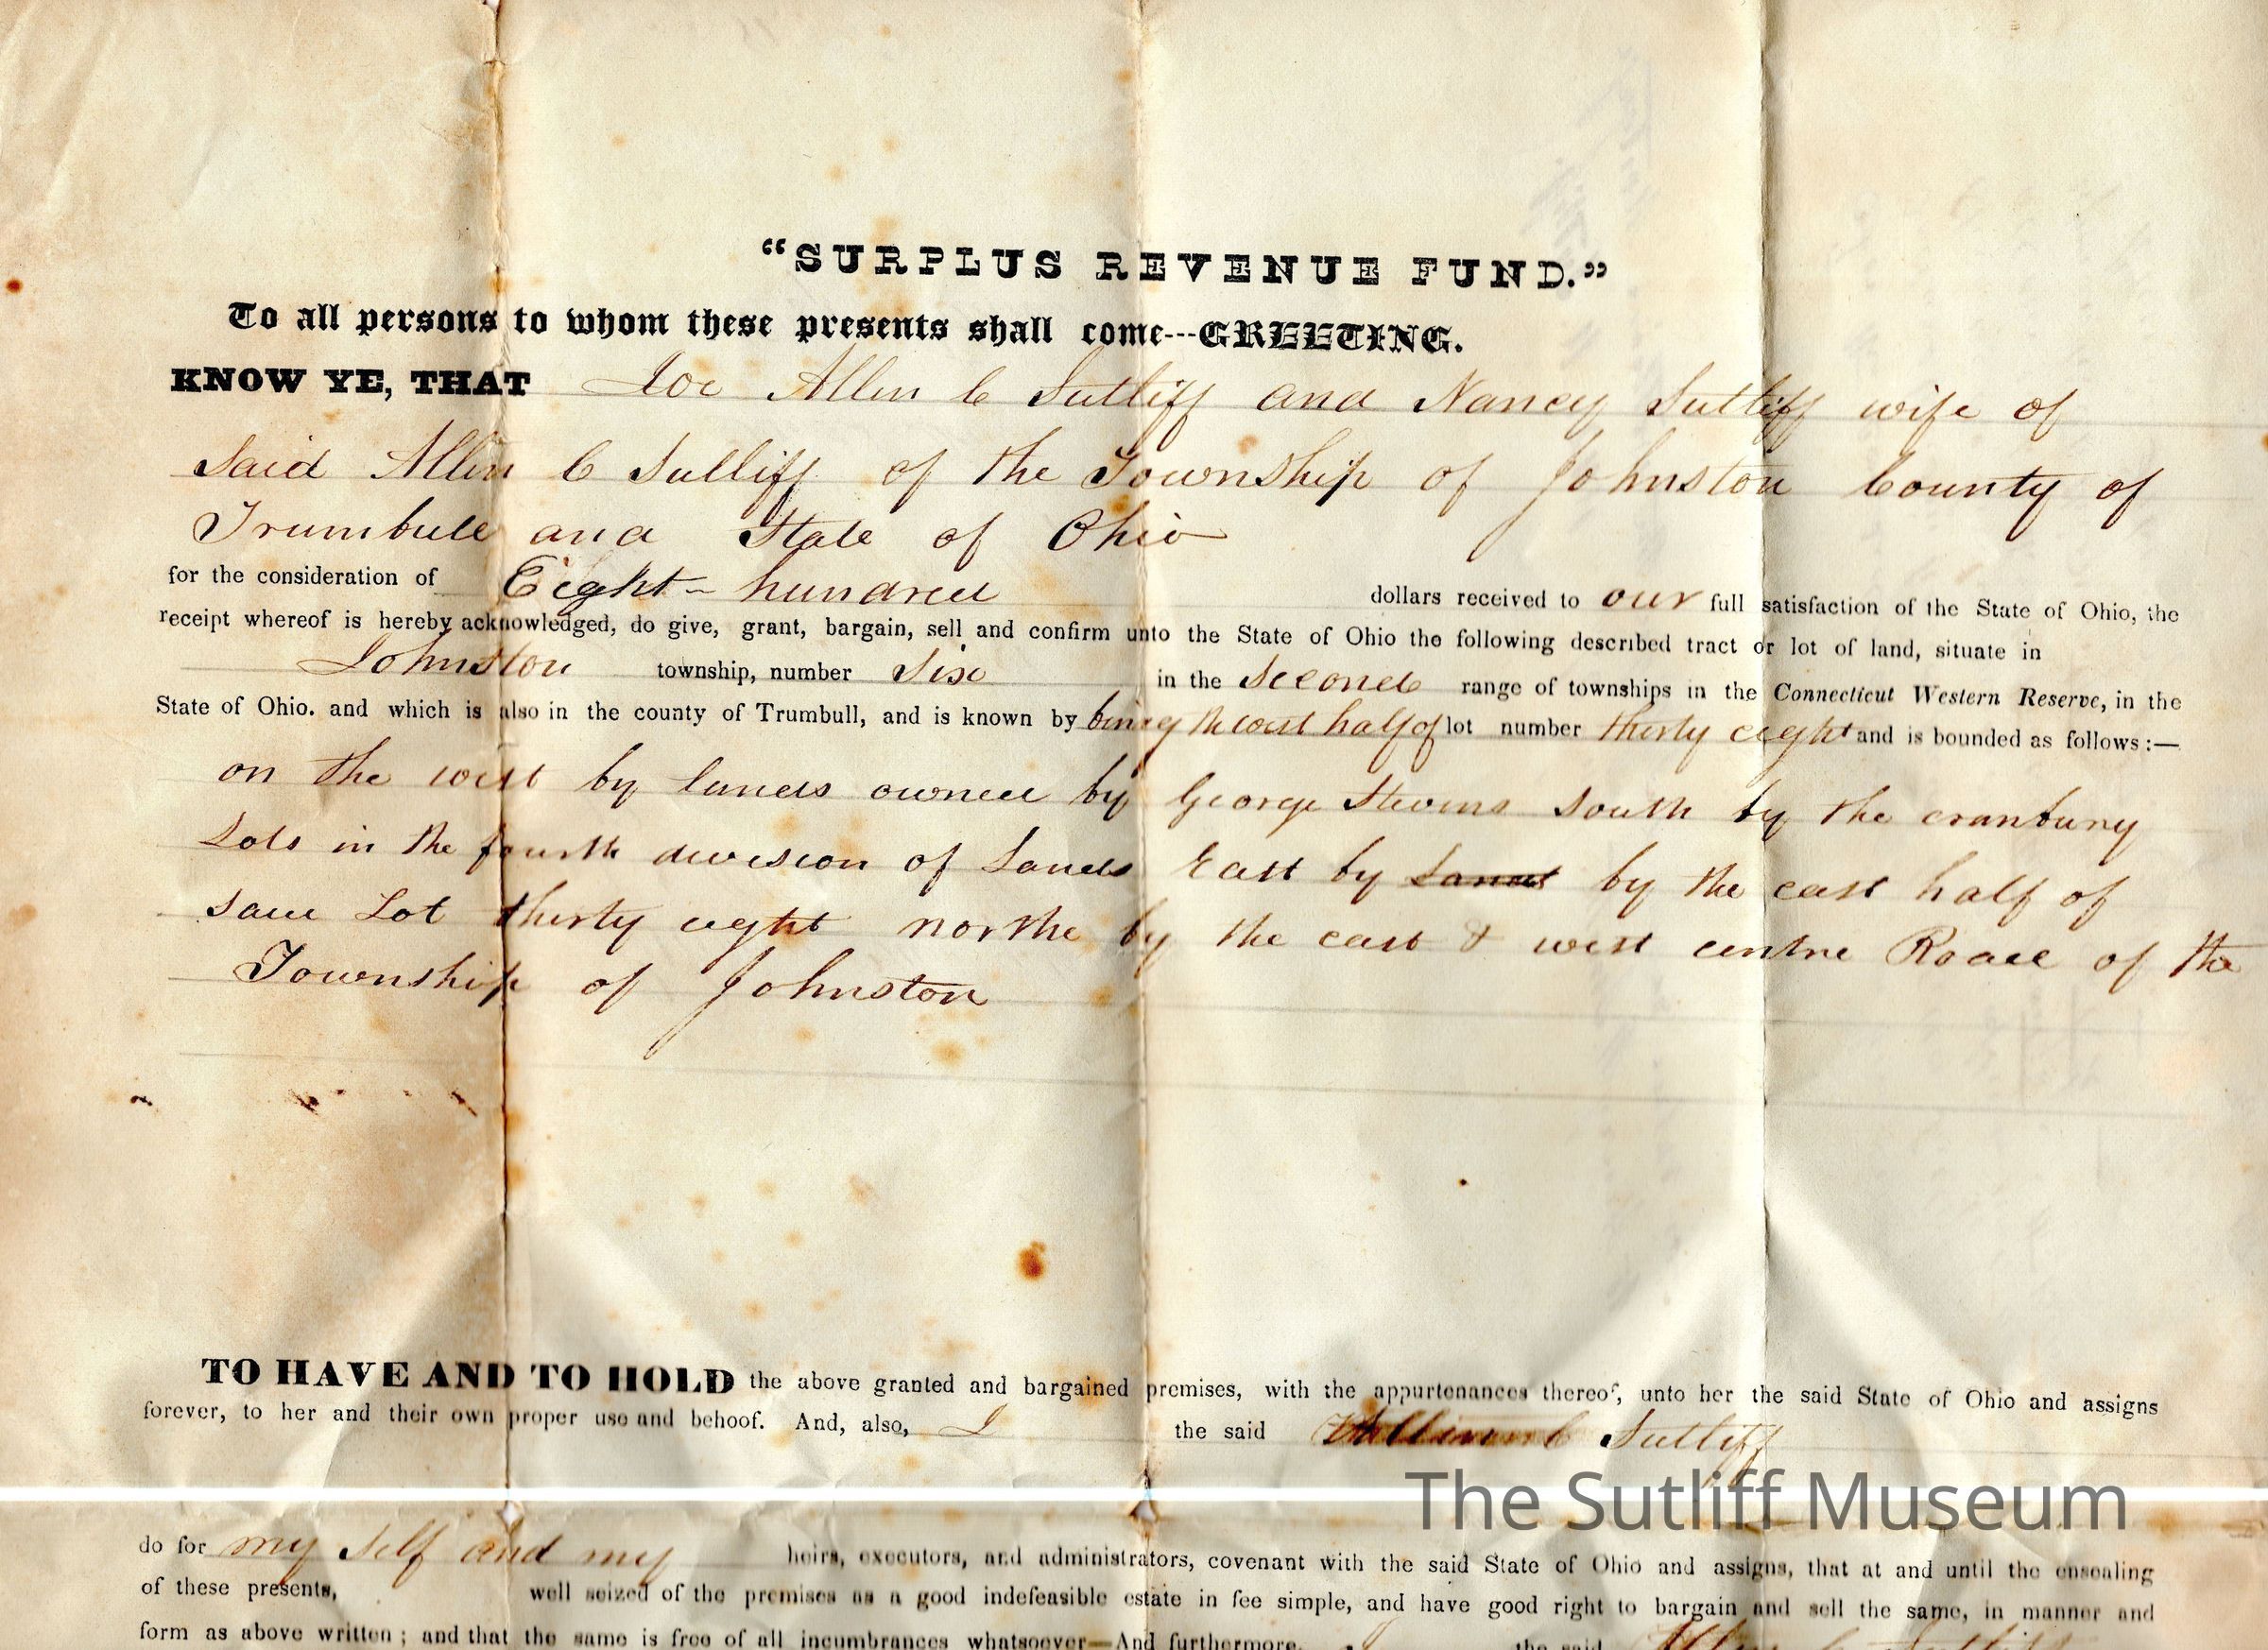 “SURPLUS REVENUE FUND.”
To all persons to whom these presents shall come---GREETING.
KNOW YE, THAT We Allen C Sutliff and Nancy Sutliff wife of
said Allen C Sutliff of the Township of Johnston County of
Trumbull and State of Ohio
for the consideration of Eight hundred dollars received to our full satisfaction of the State of Ohio, the
receipt whereof is hereby acknowledged, do give, grant, bargain, sell and confirm unto the State of Ohio the following described tract or lot of land, situate in
Johnston township, number Six in the Second range of townships in the Connecticut Western Reserve, in the
State of Ohio. and which is also in the county of Trumbull, and is known by being the west half of lot number thirty eight and is bounded as follows:—
on the west by lands owned by George Stevens south by the cranbury
Lots in the fourth division of Lands East by by the east half of
said Lot thirty eight northe by the east & west centre Road of the
Township of Johnston
TO HAVE AND TO HOLD the above granted and bargained premises, with the appurtenances thereof, unto her the said State of Ohio and assigns
forever, to her and their own proper use and behoof. And, also, I the said Sutliff
The Sutliff Museum
do for my self and my heirs, executors, and administrators, covenant with the said State of Ohio and assigns, that at and until the ensealing
of these presents, well seized of the premises as a good indefeasible estate in fee simple, and have good right to bargain and sell the same, in manner and
form as above written; and that the same is free of all incumbrances whatsoever—And furthermore, the said